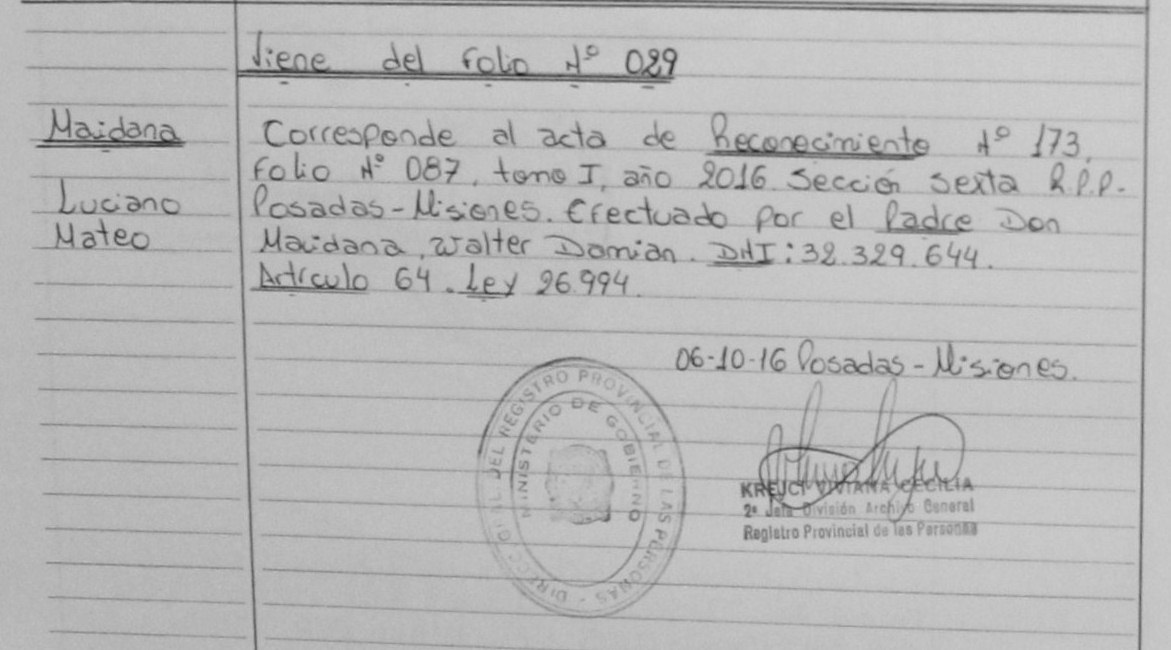 Viene del folio Nº 029
Maidana
Luciano
Mateo
Corresponde al acta de Reconocimiento Nº 173,
folio Nº 087, tomo I, año 2016. Sección Sexta R.P.P.
Posadas-Misiones. Efectuado por el Padre Don
Maidana, Walter Damian. DNI: 32.329.644.
Artículo 64. Ley 26.994.
06-10-16 Posadas-Misiones.
DIRECCION GRAL. DEL REGISTRO PROVINCIAL DE LAS PERSONAS
MINISTERIO DE GOBIERNO
KREUCI VIVIANA CECILIA
2º Jefe División Archivo General
Registro Provincial de las Personas